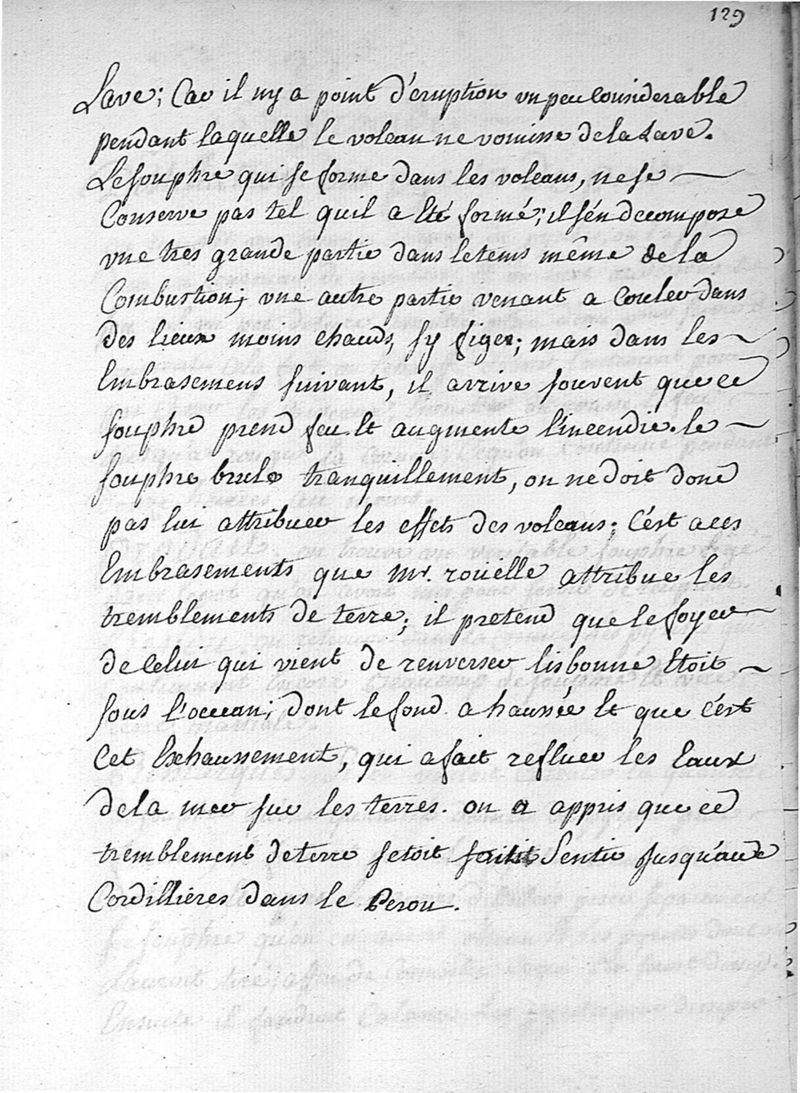 129
Lave; Car il ny a point d'eruption un peu Considerable
pendant laquelle le volcan ne vomisse de la Lave.
Le souphre qui se forme dans les volcans, ne se
Conserve pas tel quil a été formé; il s'en decompose
une tres grande partie dans le tems même de la
Combustion; une autre partie venant a Couler dans
des lieux moins chauds, s'y figer; mais dans les
Embrasemens suivant, il arrive souvent que ce
souphre prend feu Et augmente l'incendie. le
souphre brule tranquillement, on ne doit donc
pas lui attribuer les effets des volcans; C'est a ces
Embrasements que mr. rouelle attribue les
tremblements de terre; il pretend que le foyer
de Celui qui vient de renverser lisbonne Etoit
sous l'ocean; dont le fond a haussée Et que c'est
Cet Exhaussement, qui a fait refluer les Eaux
de la mer sur les terres. on a appris que ce
tremblement de terre setoit Sentir Jusqu'aux
Cordillières dans le Perou.